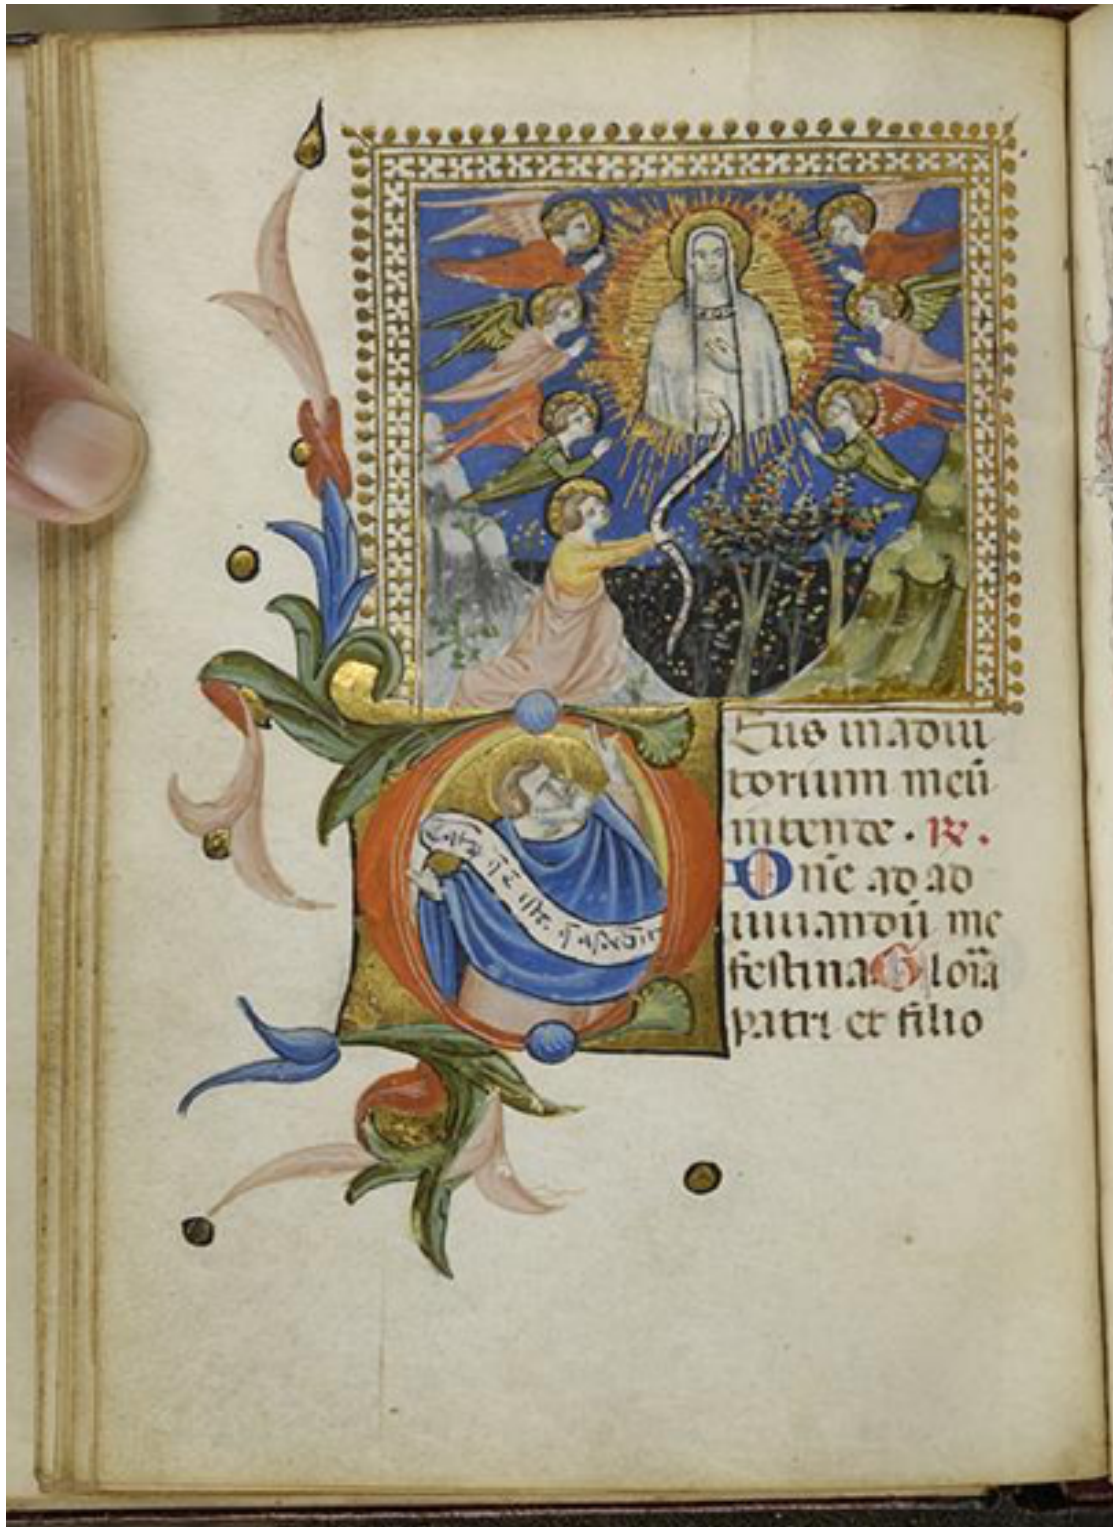 DEus in adiu
torium meū
intende. ℟.
Dn̄e ad ad
iuuandū me
festina Gloīa
patri et filio